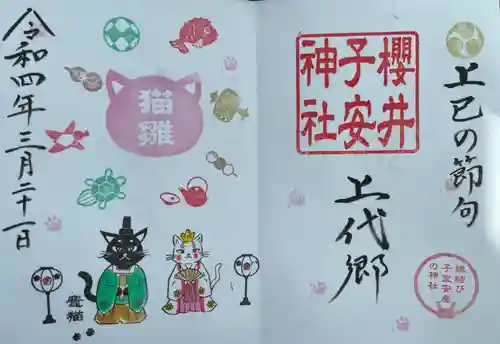 上巳の節句
櫻井
子安
神社
上代郷
縁結び
子宝安産
の神社
猫雛
令和四年三月二十一日